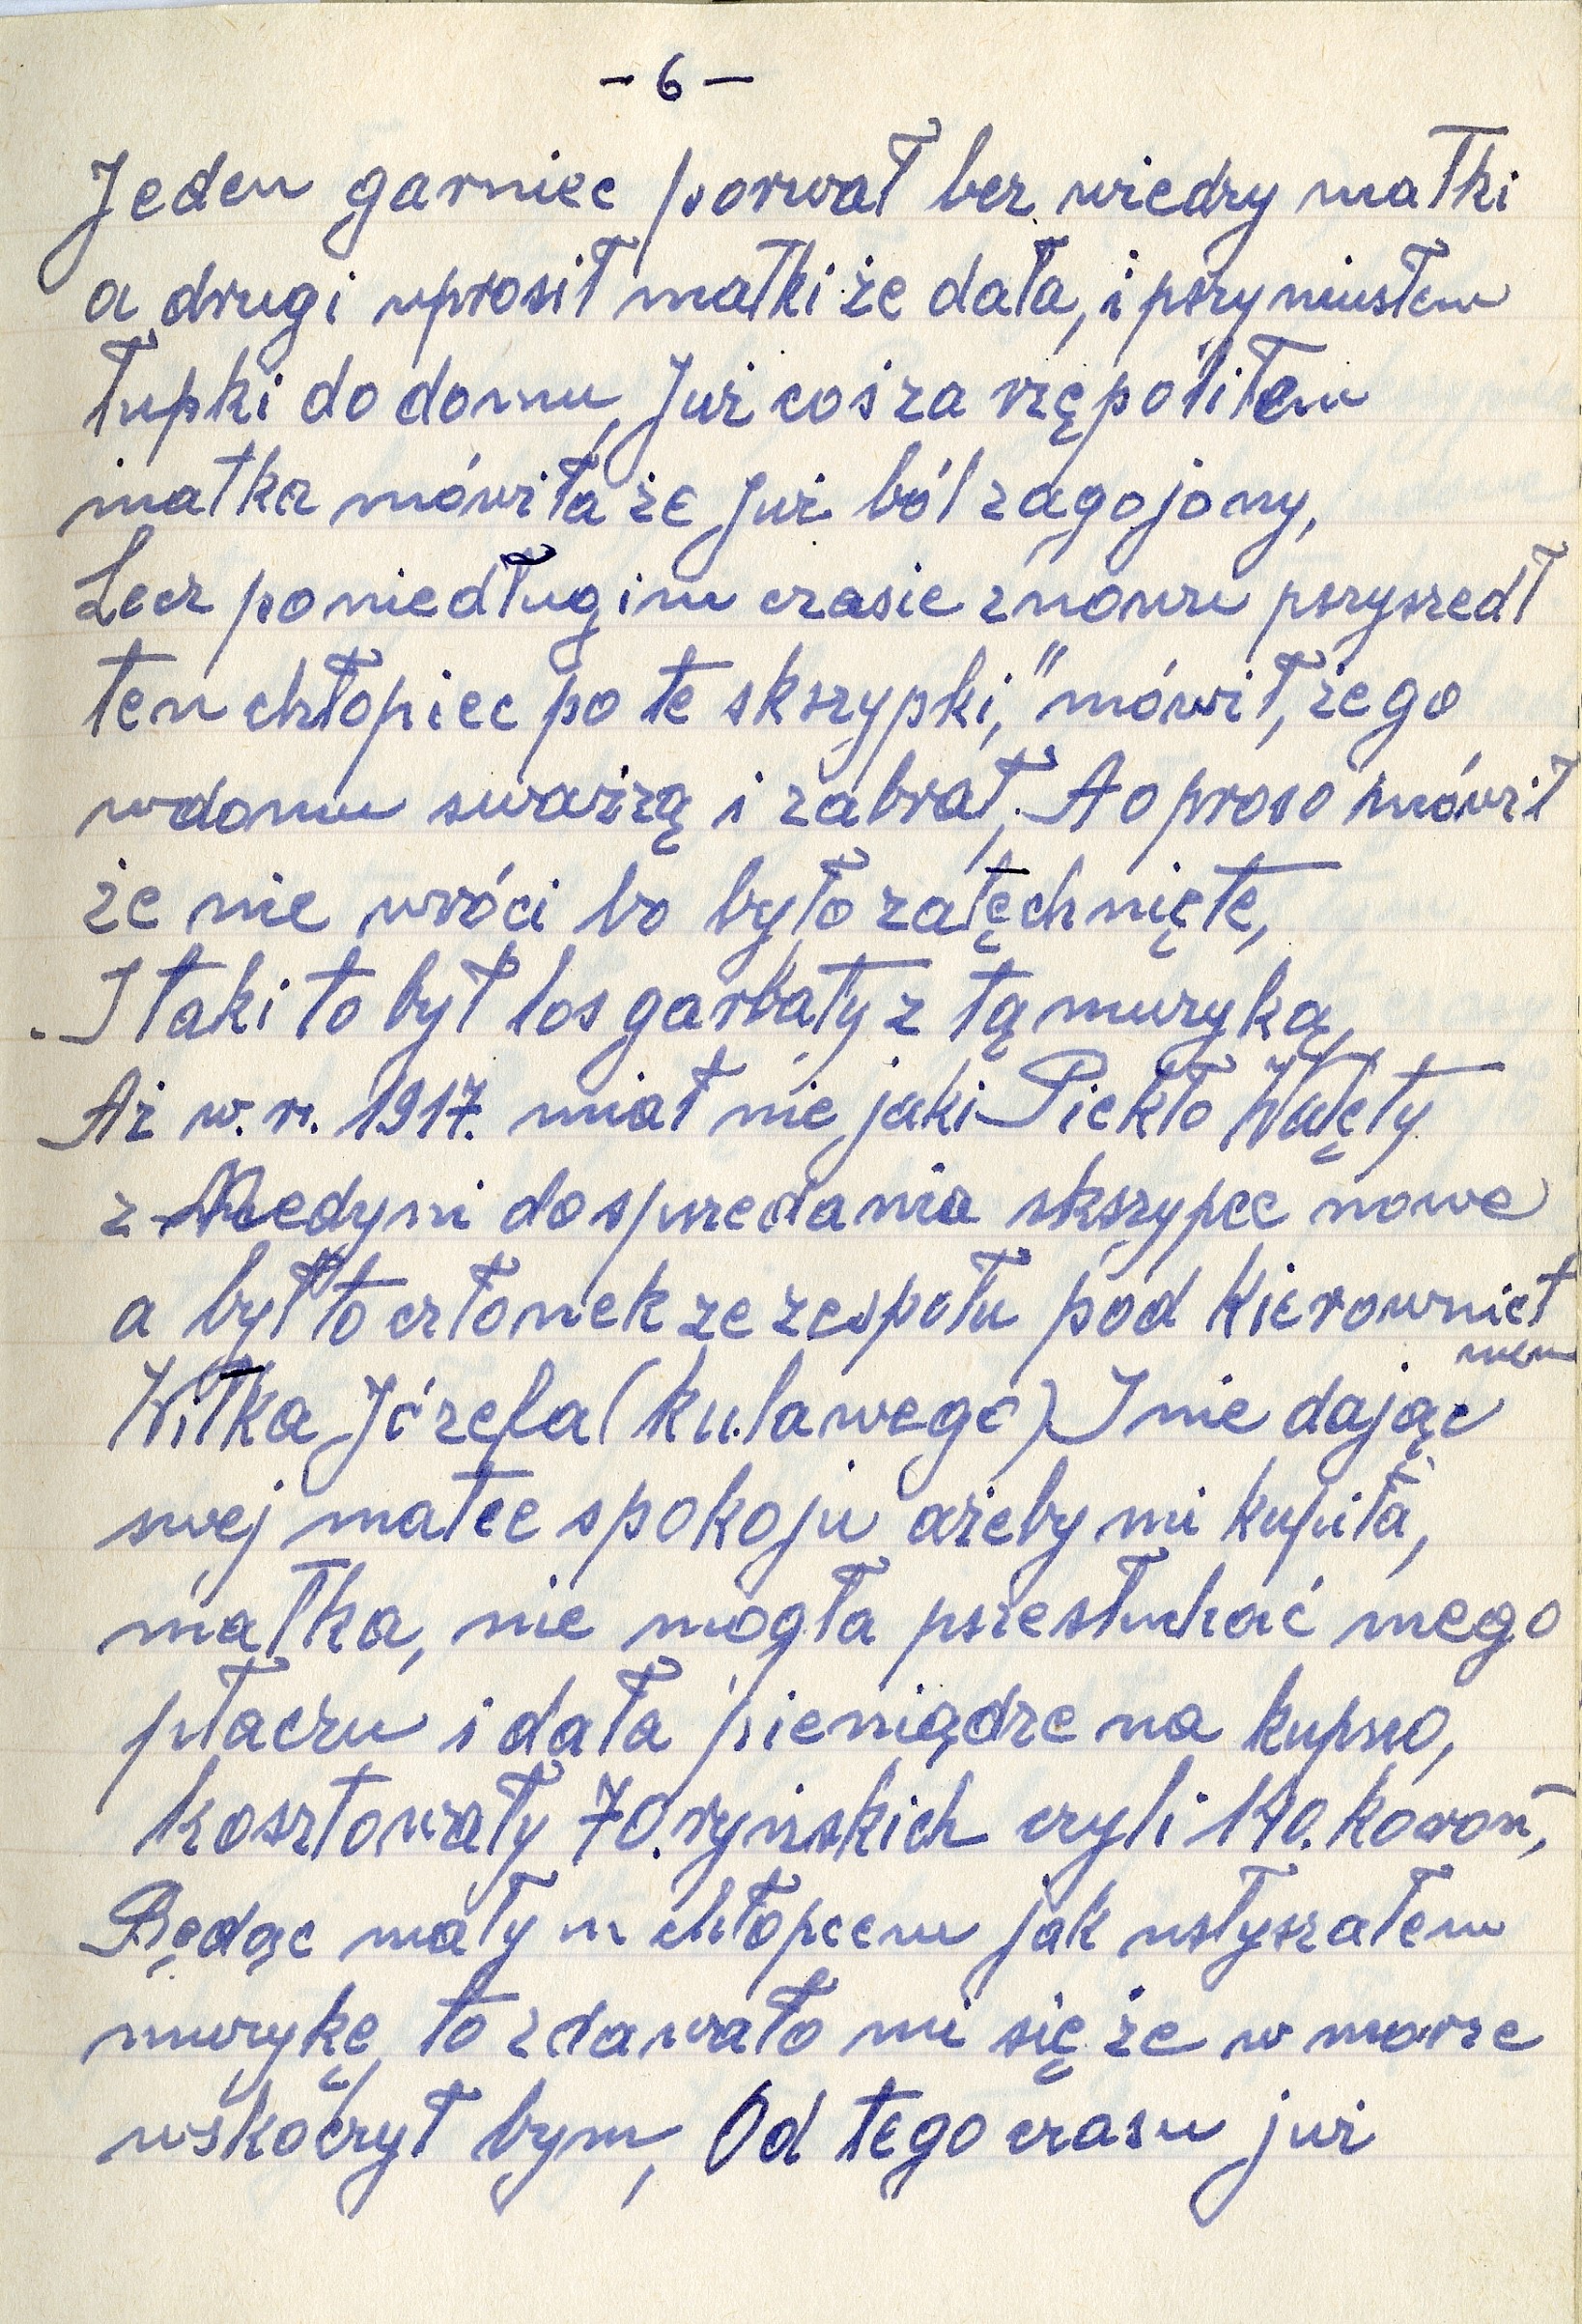 - 6 -
Jeden garniec porwał bez wiedzy matki
a drugi uprosił matki że dała, i pszyniusłem
łupki do domu, Już coś za rzępoliłem
matka mówiła że Już ból zagojony,
Lecz po niedługim czasie znowu pszyszedł
ten chłopiec po te skszypki, "mówił, żego
wdomu swarzą i zabrał, A o proso mówił
że nie wróci bo było zatęchnięte,
I taki to był los garbaty z tą muzyką,
Aż w. r. 1917. miał nie jaki Piekło Walęty
z Medyni do spszedania skszypce nowe
a był to członek ze zespołu pod kierownict
wem
Witka Józefa (kulawego) I nie dając
swej matce spokoju ażeby mi kupiła,
matka, nie mogła pszesłuchać mego
płaczu i dała pieniądze na kupno,
kosztowały 70. ryńskich czyli 140. koron,
Będąc małym chłopcem jak usłyszałem
muzykę, to zdawało mi się że w morze
wskoczył bym, Od tego czasu już